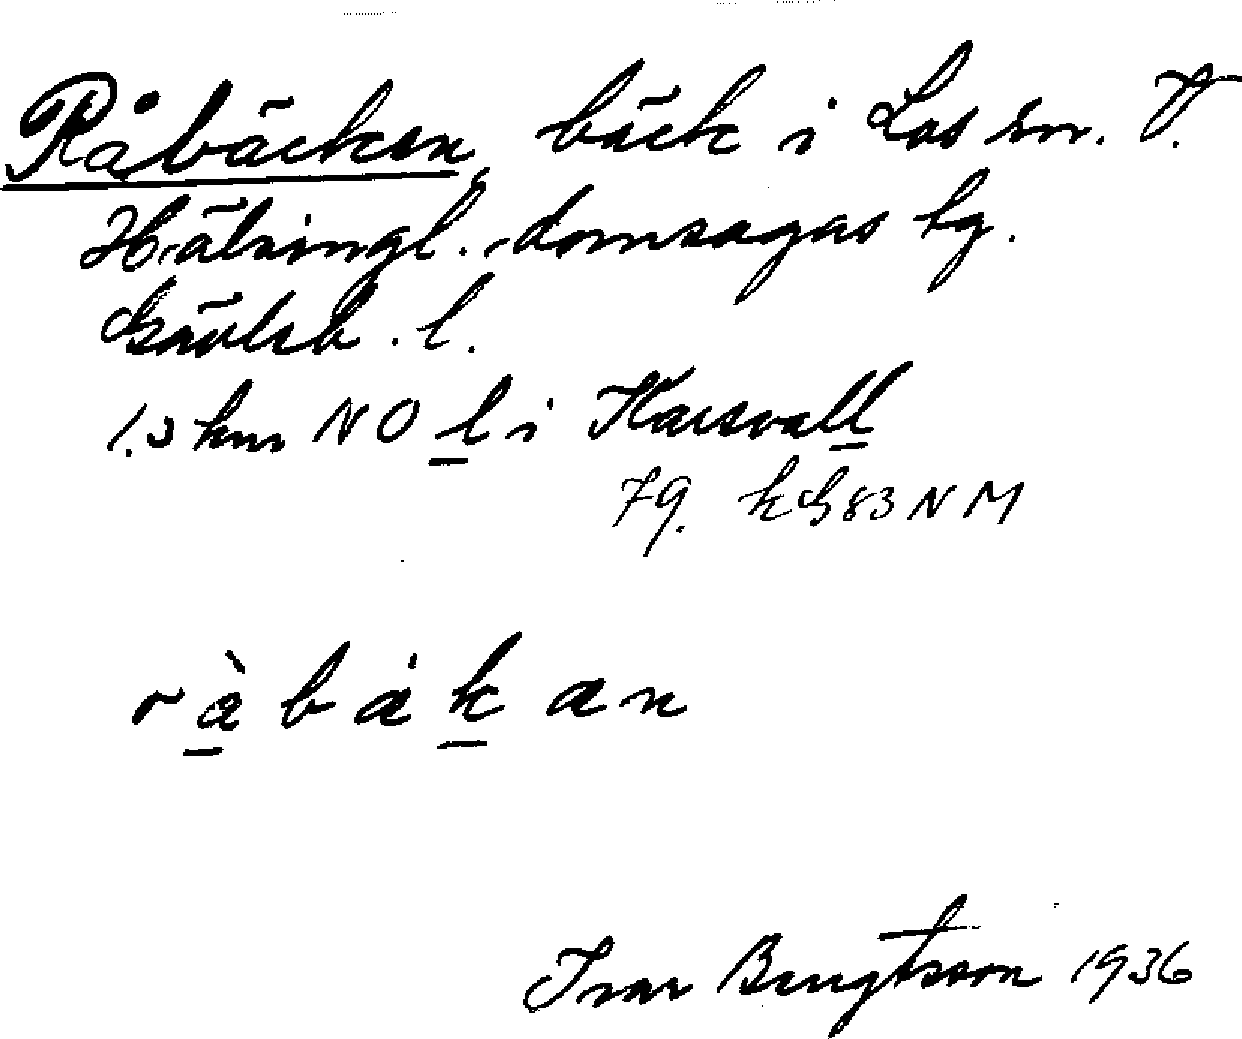 Råbäcken, bäck i Los sn. V.
Hälsingl. domsagas tg.
Gävleb. l.
1.3 km NO l i Karsvall
79. kG83NM
ràbäkan
Ivar Bengtsson 1936